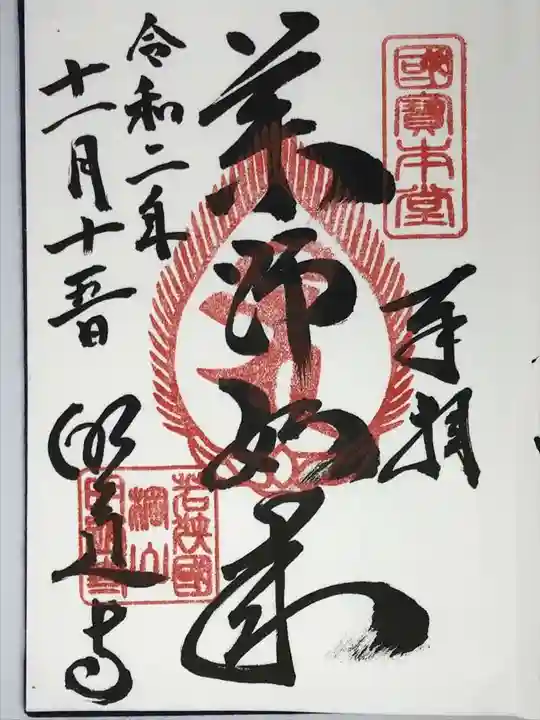 國寶本堂
奉拝
薬師如来
令和二年
十一月十五日
明通寺
若狭國
棡山
明通寺